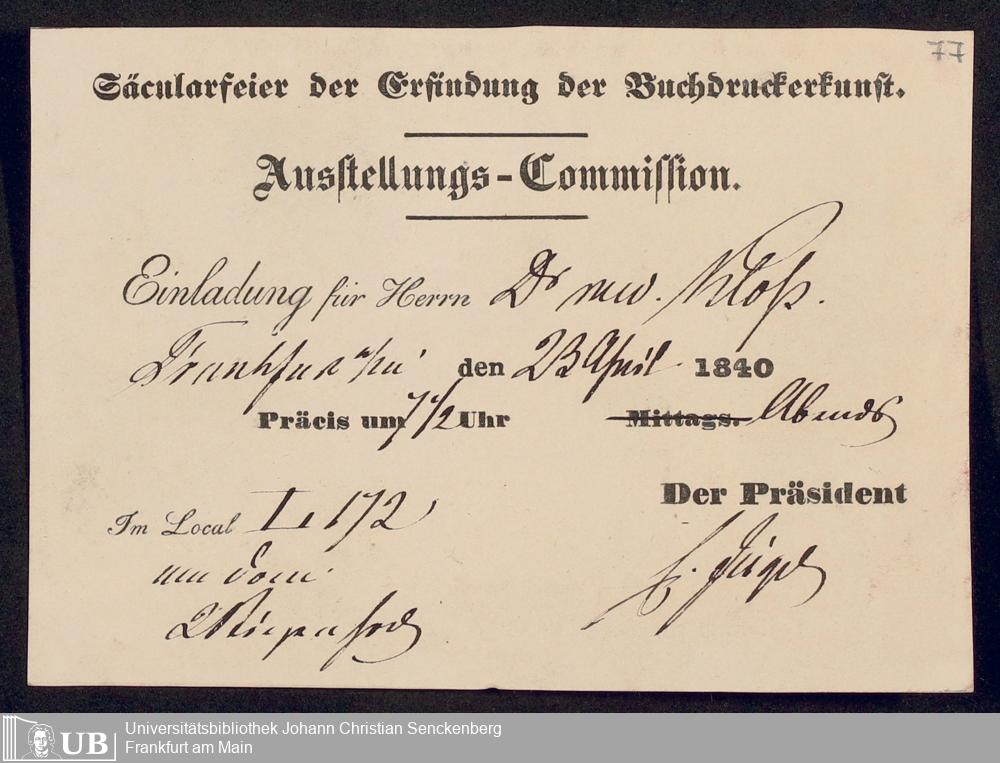 77
Säcularfeier der Erfindung der Buchdruckerkunst.
Ausstellungs-Commission.
Einladung für Herrn Dr med. Kloß.
Frankfurt a/M den 23 April 1840
Präcis um 7 1/2 Uhr Mittags. Abends
Der Präsident
Im Local L 172
am Dom
C. Jügel
UB
Universitätsbibliothek Johann Christian Senckenberg
Frankfurt am Main